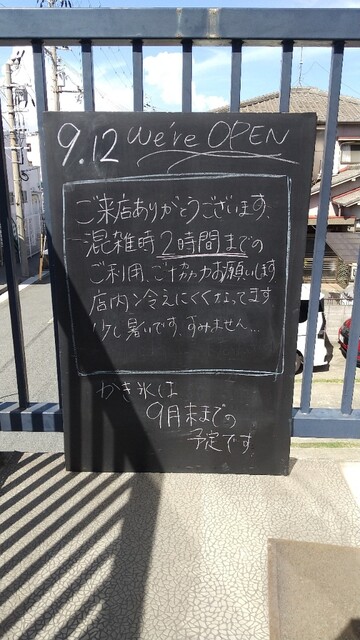 9.12 We're OPEN
ご来店ありがとうございます、
混雑時2時間までの
ご利用、ご協力お願いします
店内冷えにくくなってます
少し暑いです、すみません...
かき氷は
9月末までの
予定です